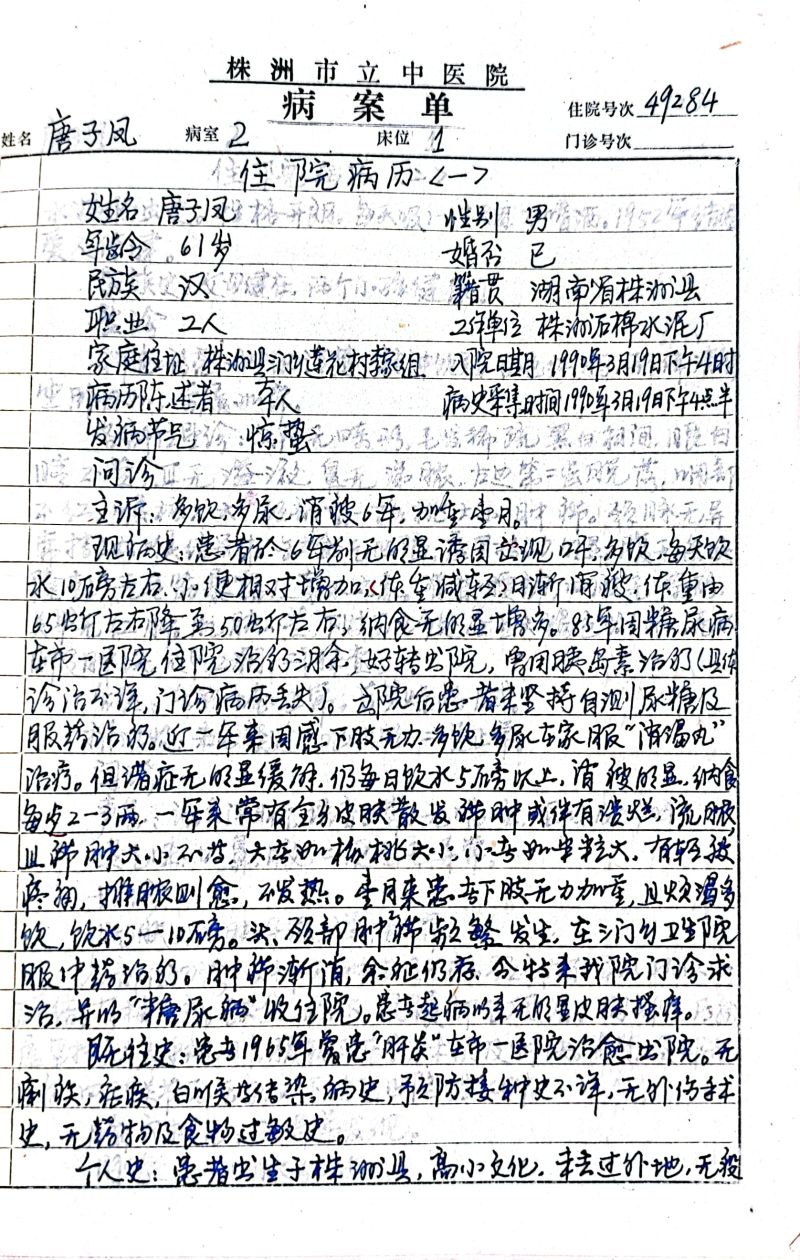 株洲市立中医院
病案单
住院号次 49284
姓名 唐子凤 病室 2 床位 1 门诊号次
住院病历<一>
姓名 唐子凤 性别 男
年龄 61岁 婚否 已
民族 汉 籍贯 湖南省株洲县
职业 工人 工作单位 株洲石棉水泥厂
家庭住址 株洲县三门乡莲花村李家组 入院日期 1990年3月19日下午4时
病历陈述者 本人 病史采集时间1990年3月19日下午4点半
发病节气 惊蛰
问诊
主诉:多饮,多尿,消瘦6年,加重壹月。
现病史:患者于6年前无明显诱因出现口干,多饮,每天饮
水10磅左右,小便相对增加,(体重减轻)日渐消瘦,体重由
65公斤左右降至50公斤左右,纳食无明显增多。85年因糖尿病
在市一医院住院治疗月余,好转出院,曾用胰岛素治疗(具体
诊治不详,门诊病历丢失)。出院后患者未坚持自测尿糖及
服药治疗。近一年来因感下肢无力,多饮多尿在家服“消渴丸”
治疗。但诸症无明显缓解,仍每日饮水5磅以上,消瘦明显,纳食
每歺2-3两,一年来常有全身皮肤散发疖肿或伴有溃烂,流脓,
且疖肿大小不等,大者如核桃大小,小者如米粒大,有轻微
疼痛,排脓则愈,不发热。壹月来患者下肢无力加重,且烦渴多
饮,饮水5—10磅。头、颈部肿疖频繁发生,在三门乡卫生院
服中药治疗。肿疖渐消,余症仍存,今特来我院门诊求
治,并以“糖尿病”收住院。患者起病以来无明显皮肤搔痒。
既往史:患者1965年曾患“肝炎”在市一医院治愈出院。无
痢疾,疟疾,白喉等传染病史,预防接种史不详,无外伤手术
史,无药物及食物过敏史。
个人史:患者出生于株洲县,高小文化,未去过外地,无疫